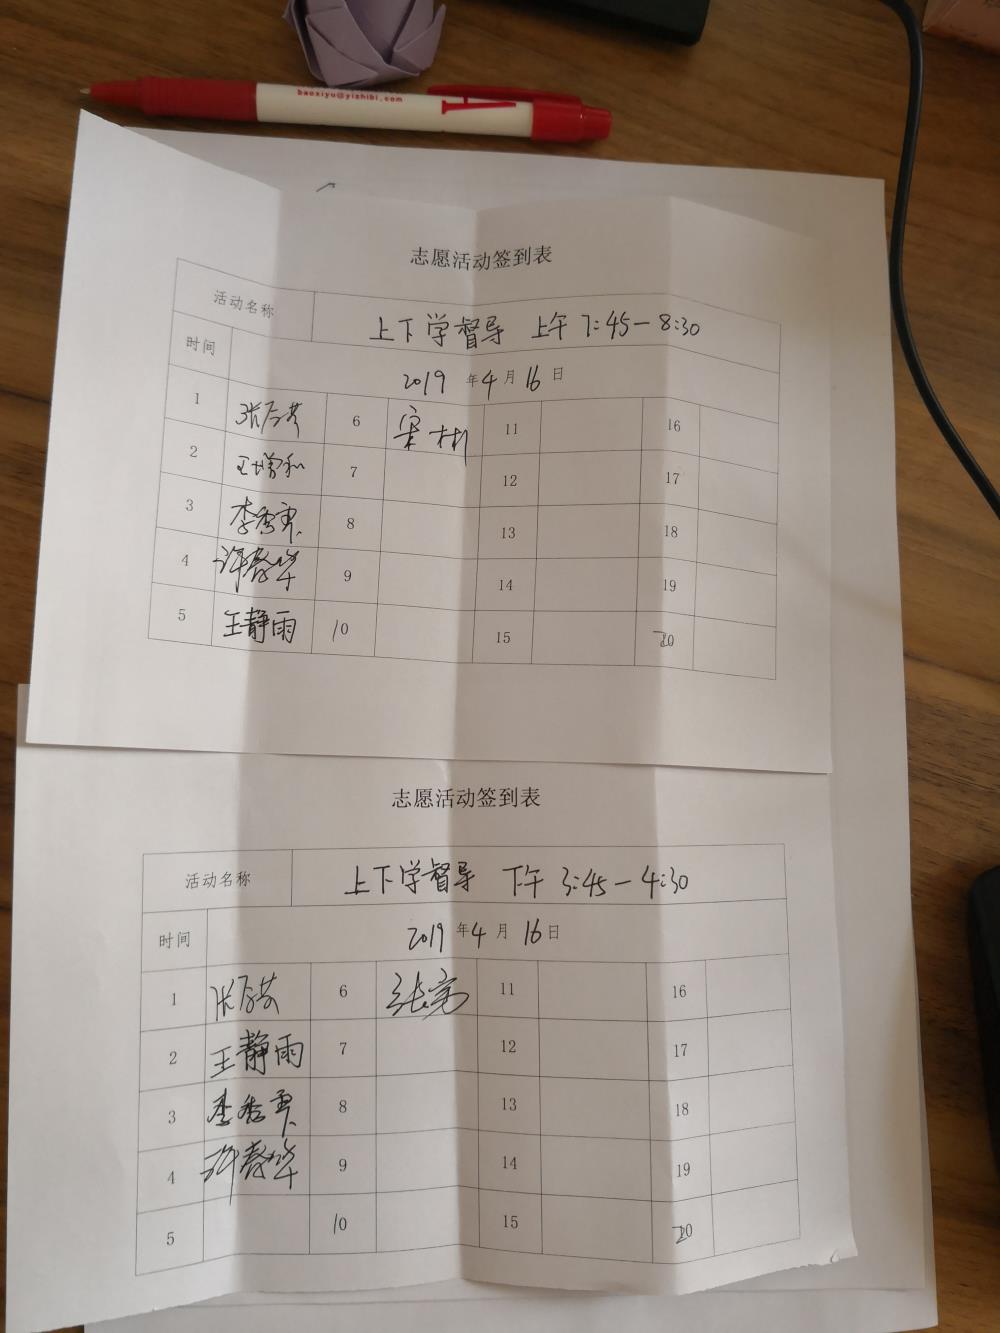 baoxiyu@yizhibi.com
志愿活动签到表
活动名称 上下学督导 上午 7:45-8:30
时间 2019 年 4 月 16 日
1 6 11 16
2 王增和 7 12 17
3 8 13 18
4 许春华 9 14 19
5 王静雨 10 15 20
志愿活动签到表
活动名称 上下学督导 下午 3:45-4:30
时间 2019 年 4 月 16 日
1 6 张亮 11 16
2 王静雨 7 12 17
3 8 13 18
4 许春华 9 14 19
5 10 15 20